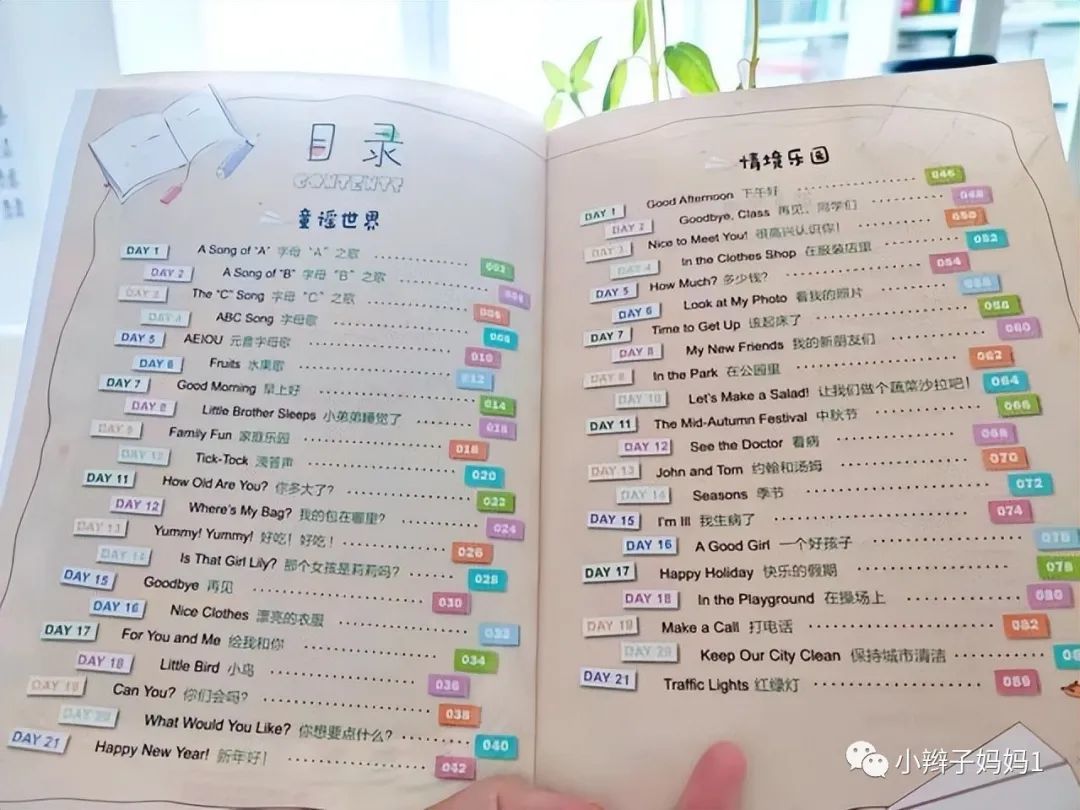 目录
CONTENTS
童谣世界
DAY 1 A Song of "A" 字母“A”之歌
DAY 2 A Song of "B" 字母“B”之歌
DAY 3 The "C" Song 字母“C”之歌
DAY 4 ABC Song 字母歌
DAY 5 AEIOU 元音字母歌 010
DAY 6 Fruits 水果歌 012
DAY 7 Good Morning 早上好 014
DAY 8 Little Brother Sleeps 小弟弟睡觉了 016
DAY 9 Family Fun 家庭乐园 018
DAY 10 Tick-Tock 滴答声 020
DAY 11 How Old Are You? 你多大了? 022
DAY 12 Where's My Bag? 我的包在哪里? 024
DAY 13 Yummy! Yummy! 好吃!好吃! 026
DAY 14 Is That Girl Lily? 那个女孩是莉莉吗? 028
DAY 15 Goodbye 再见 030
DAY 16 Nice Clothes 漂亮的衣服 032
DAY 17 For You and Me 给我和你 034
DAY 18 Little Bird 小鸟 036
DAY 19 Can You? 你们会吗? 038
DAY 20 What Would You Like? 你想要点什么? 040
DAY 21 Happy New Year! 新年好! 042
情境乐园
DAY 1 Good Afternoon 下午好 046
DAY 2 Goodbye, Class 再见,同学们 048
DAY 3 Nice to Meet You! 很高兴认识你! 050
DAY 4 In the Clothes Shop 在服装店里 052
DAY 5 How Much? 多少钱? 054
DAY 6 Look at My Photo 看我的照片
DAY 7 Time to Get Up 该起床了 058
DAY 8 My New Friends 我的新朋友们 060
DAY 9 In the Park 在公园里 062
DAY 10 Let's Make a Salad! 让我们做个蔬菜沙拉吧! 064
DAY 11 The Mid-Autumn Festival 中秋节 066
DAY 12 See the Doctor 看病 068
DAY 13 John and Tom 约翰和汤姆 070
DAY 14 Seasons 季节 072
DAY 15 I'm Ill 我生病了 074
DAY 16 A Good Girl 一个好孩子 076
DAY 17 Happy Holiday 快乐的假期 078
DAY 18 In the Playground 在操场上 080
DAY 19 Make a Call 打电话 082
DAY 20 Keep Our City Clean 保持城市清洁
DAY 21 Traffic Lights 红绿灯 086
小辫子妈妈1